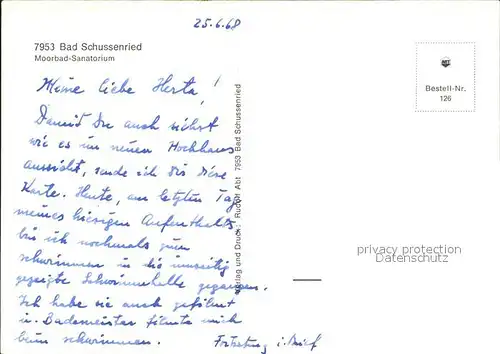 25.6.68
7953 Bad Schussenried
Moorbad-Sanatorium
Bestell-Nr.
126
Meine liebe Herta!
Damit Du auch siehst
wie es im neuen Hochhaus
aussieht, sende ich Dir diese
Karte. Heute, am letzten Tag
meines hiesigen Aufenthalts
bin ich nochmals zum
schwimmen in die umseitig
gezeigte Schwimmhalle gegangen.
Ich habe sie auch gefilmt
u. Bademeister filmte mich
beim schwimmen.
Fortsetzung i. Brief
Verlag und Druck: Rudolf Abt 7953 Bad Schussenried
privacy protection
Datenschutz